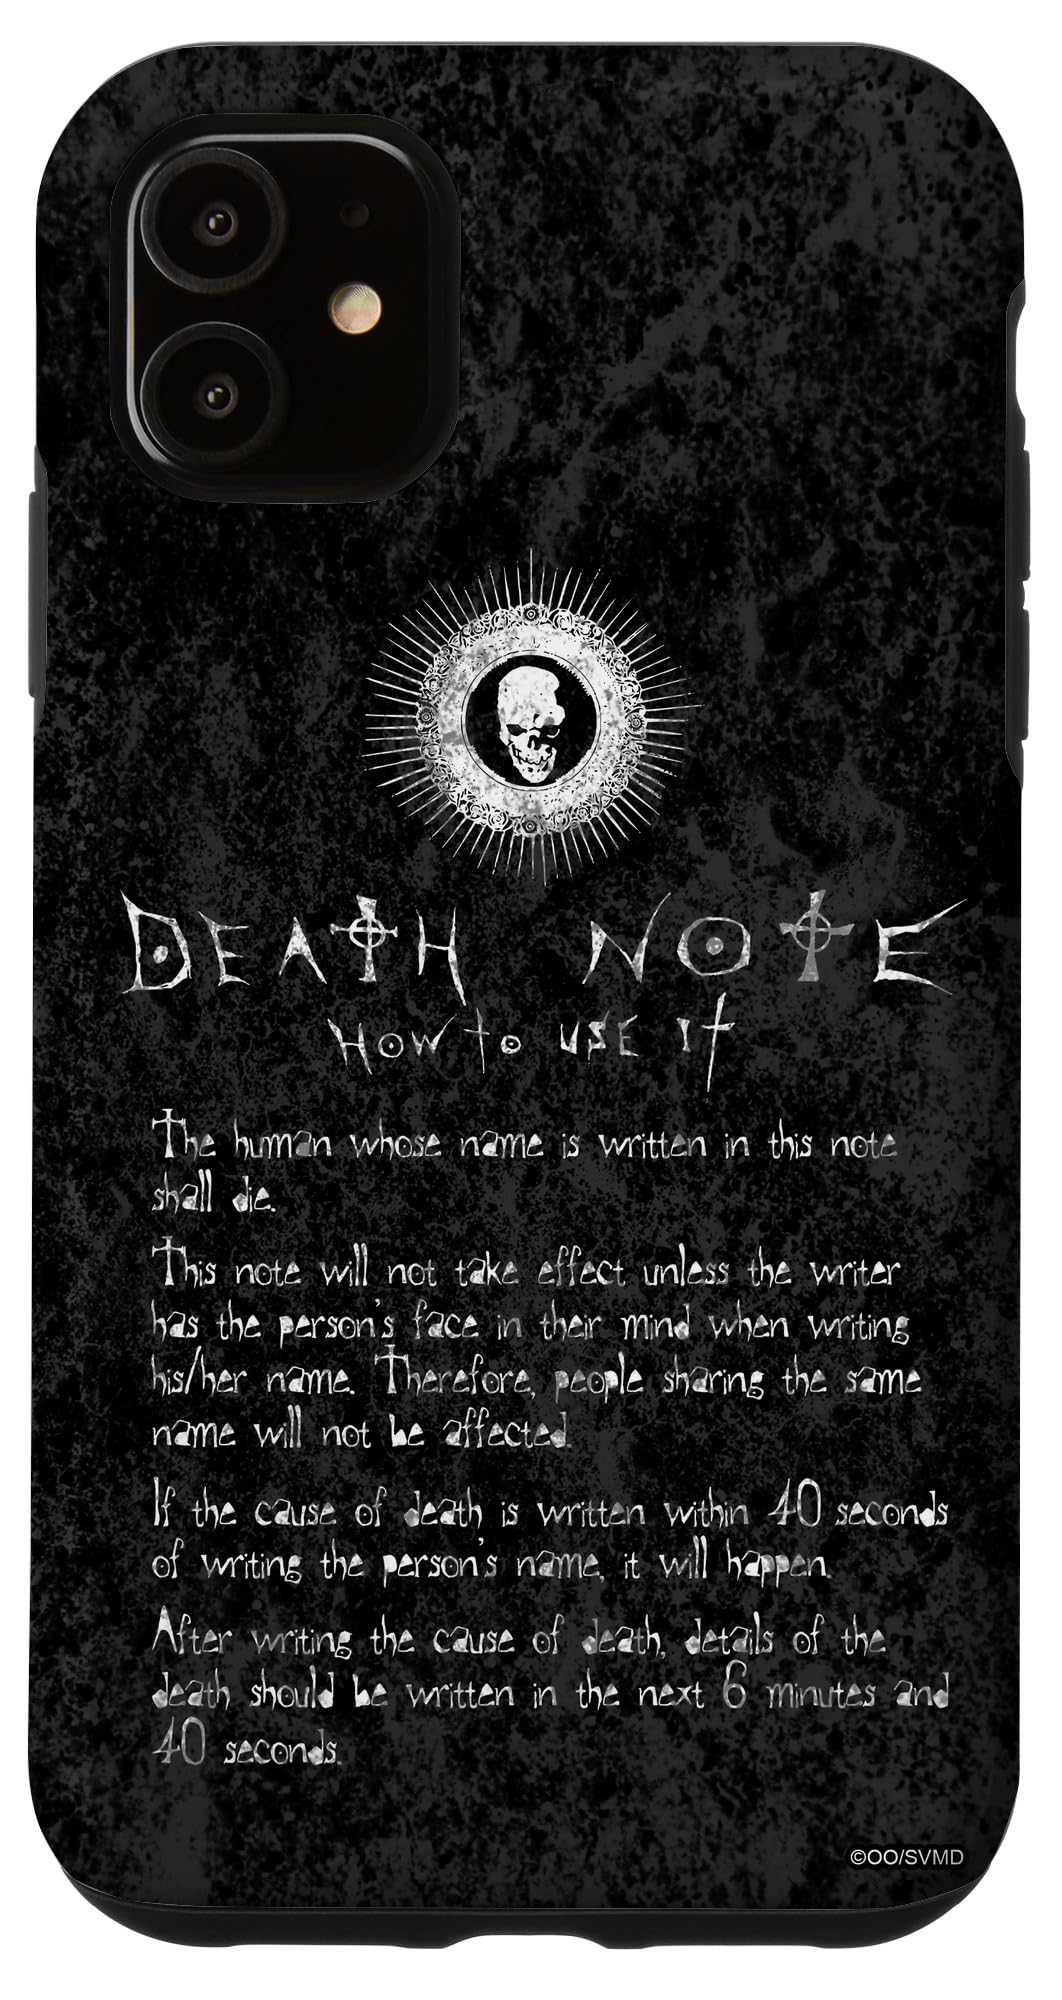 DEATH NOTE
HOW TO USE IT
The human whose name is written in this note
shall die.
This note will not take effect unless the writer
has the person's face in their mind when writing
his/her name. Therefore, people sharing the same
name will not be affected.
If the cause of death is written within 40 seconds
of writing the person's name, it will happen.
After writing the cause of death, details of the
death should be written in the next 6 minutes and
40 seconds.
©OO/SVMD